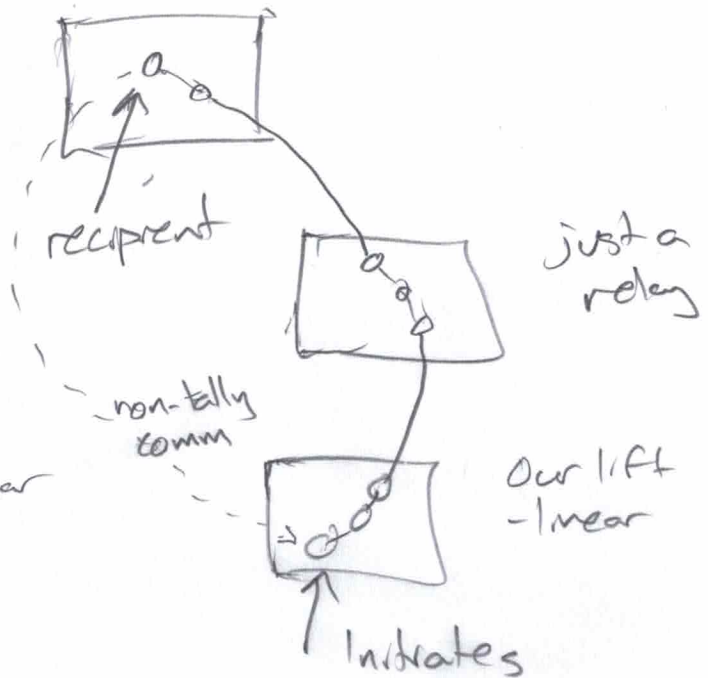 recipient
just a
relay
non-tally
comm
ar
Our lift
-linear
Initiates